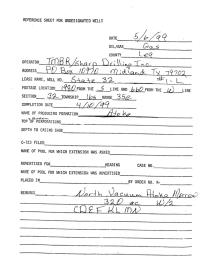 REFERENCE SHEET FOR UNDESIGNATED WELLS
DATE 5/6/99
OIL/GAS Gas
COUNTY Lea
OPERATOR TMBR/Sharp Drilling Inc.
ADDRESS PO Box 10970 Midland Tx 79702
LEASE NAME, WELL NO. State 32 #1-L
FOOTAGE LOCATION 1980 FROM THE S LINE AND 660 FROM THE W LINE
SECTION 32 TOWNSHIP 16S RANGE 35E
COMPLETION DATE 4/10/99
NAME OF PRODUCING FORMATION Atoka
TOP OF PERFORATIONS
DEPTH TO CASING SHOE
C-123 FILED
NAME OF POOL FOR WHICH EXTENSION WAS ASKED
ADVERTISED FOR HEARING CASE NO.
NAME OF POOL FOR WHICH EXTENSION WAS ADVERTISED
PLACED IN BY ORDER NO. R-
REMARKS North Vacuum Atoka Morrow
320 ac W/2
CDEF KLMN